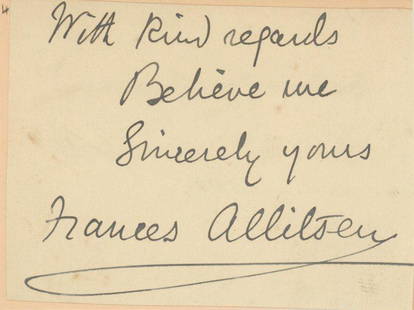 With kind regards
Believe me
Sincerely yours
Frances Allitsen